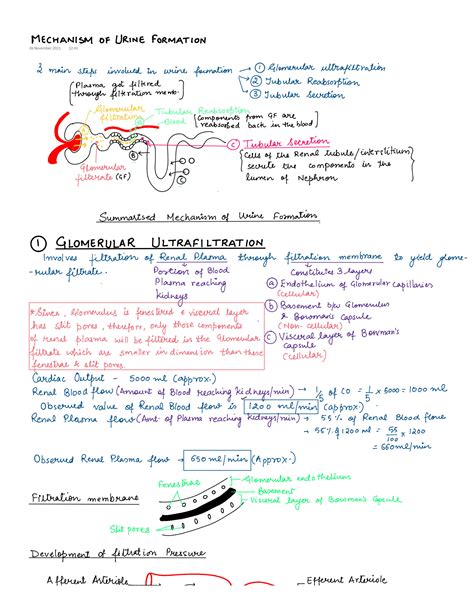 MECHANISM OF URINE FORMATION
2 main steps involved in urine formation → ① Glomerular ultrafiltration
② Tubular Reabsorption
③ Tubular Secretion
[Plasma got filtered through filtration memb.]
Glomerular filtration
Ⓐ
Ⓑ Tubular Reabsorption
Blood
[Components from GF are reabsorbed back in the blood]
Ⓑ
Glomerular filtrate (GF)
Ⓒ
Ⓒ Tubular Secretion
[Cells of the Renal tubule/interstitium secrete the components in the lumen of Nephron
Summarised Mechanism of Urine Formation
① GLOMERULAR ULTRAFILTRATION
Involves filtration of Renal Plasma through filtration membrane to yield glome-
-rular filtrate.
Portion of Blood Plasma reaching kidneys
Constitutes 3 layers
ⓐ Endothelium of Glomerular Capillaries
(Cellular)
ⓑ Basement b/w Glomerulus & Bowman's Capsule
(Non-cellular)
ⓒ Visceral layer of Bowman's capsule
(Cellular)
* Since, Glomerulus is fenestered & visceral layer
has slit pores, therefore, only those components
of renal plasma will be filtered in the Glomerular
filtrate which are smaller in dimension than these
fenestrae & slit pores.
Cardiac Output - 5000 ml (approx.)
Renal Blood flow (Amount of Blood reaching kidneys/min) → 1/5 of CO = 1/5 × 5000 = 1000 ml
Observed value of Renal Blood flow is 1200 ml/min (approx.)
Renal Plasma flow (Amt. of Plasma reaching kidneys/min) → 55% of Renal Blood flow
→ 55% of 1200 ml = 55/100 × 1200
= 660 ml/min
Observed Renal Plasma flow → 650 ml/min (Approx.)
Filtration membrane
Fenestrae
Glomerular endothelium
Basement
Visceral layer of Bowman's Capsule
Slit pores
Development of filtration Pressure
Afferent Arteriole
Efferent Arteriole